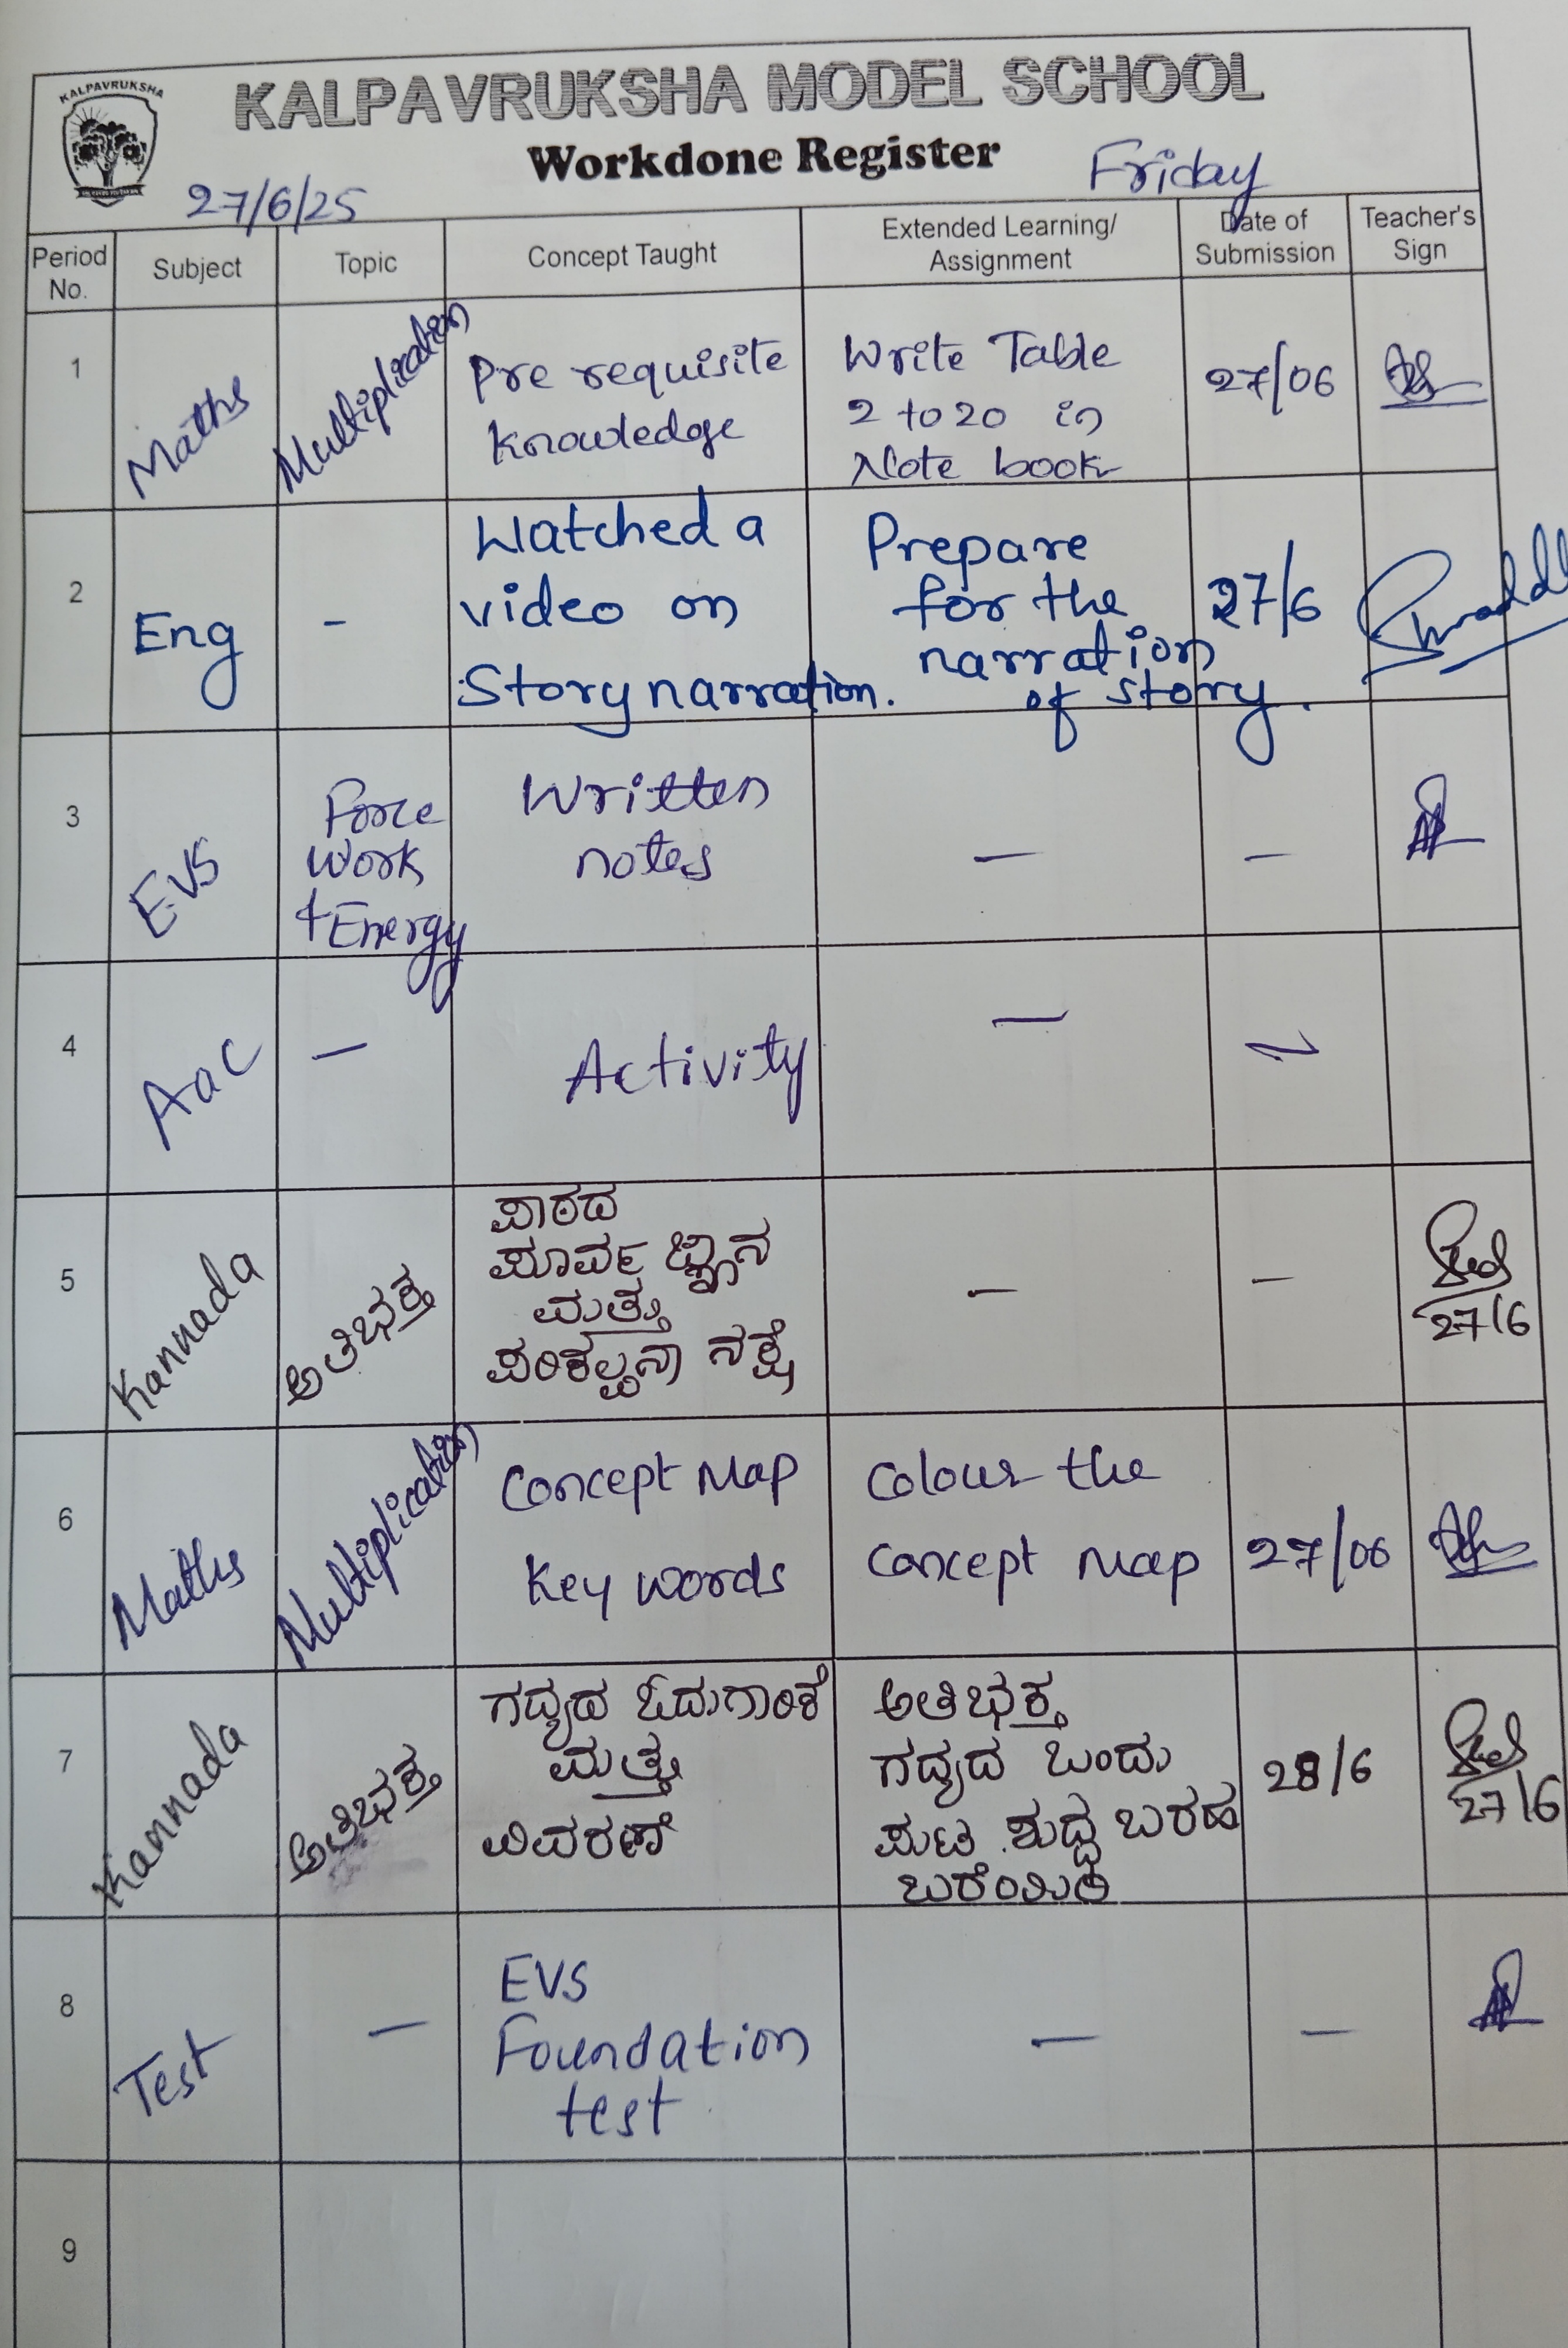 KALPAVRUKSHA
KALPAVRUKSHA MODEL SCHOOL
Workdone Register
27/6/25
Friday
Period No.
Subject
Topic
Concept Taught
Extended Learning/
Assignment
Date of
Submission
Teacher's
Sign
1
Maths
Multiplication
Pre requisite
knowledge
Write Table
2 to 20 in
Note book
27/06
2
Eng
-
Watched a
video on
Story narration.
Prepare
for the
narration
of story.
27/6
3
EVS
Force
Work
+ Energy
Written
notes
—
—
4
Aac
—
Activity
—
—
5
Kannada
ಅತಿಭಕ್ತ
ಪಾಠದ
ಪೂರ್ವ ಜ್ಞಾನ
ಮತ್ತು
ಪರಿಕಲ್ಪನಾ ನಕ್ಷೆ
—
—
27/6
6
Maths
Multiplication
Concept Map
Key words
Colour the
concept map
27/06
7
Kannada
ಅತಿಭಕ್ತ
ಗದ್ಯದ ಓದುಗಾರಿಕೆ
ಮತ್ತು
ವಿವರಣೆ
ಅತಿಭಕ್ತ
ಗದ್ಯದ ಒಂದು
ಪುಟ ಶುದ್ಧ ಬರಹ
ಬರೆಯಿರಿ
28/6
27/6
8
Test
—
EVS
Foundation
test
—
—
9